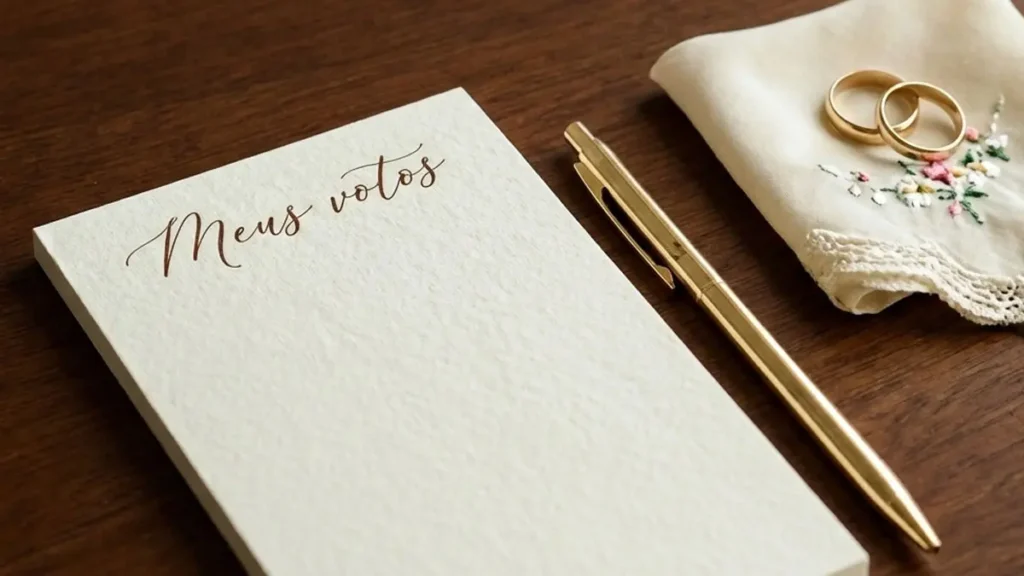 Meus votos